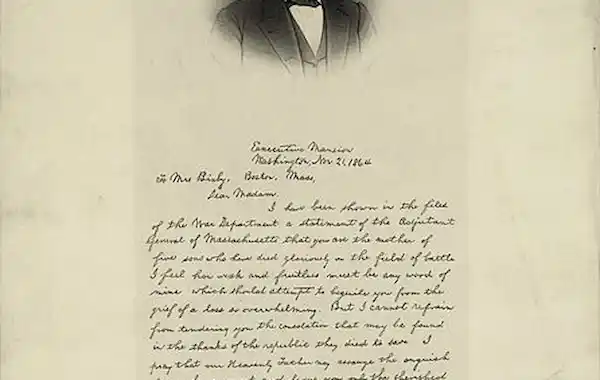 Executive Mansion
Washington, Nov 21, 1864
To Mrs Bixby, Boston, Mass,
Dear Madam.
I have been shown in the files
of the War Department a statement of the Adjutant
General of Massachusetts that you are the mother of
five sons who have died gloriously on the field of battle
I feel how weak and fruitless must be any word of
mine which should attempt to beguile you from the
grief of a loss so overwhelming. But I cannot refrain
from tendering you the consolation that may be found
in the thanks of the republic they died to save I
pray that our Heavenly Father may assuage the anguish
leave you only the cherished